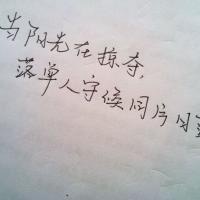 当阳光在掠夺,
落单人守候同片日